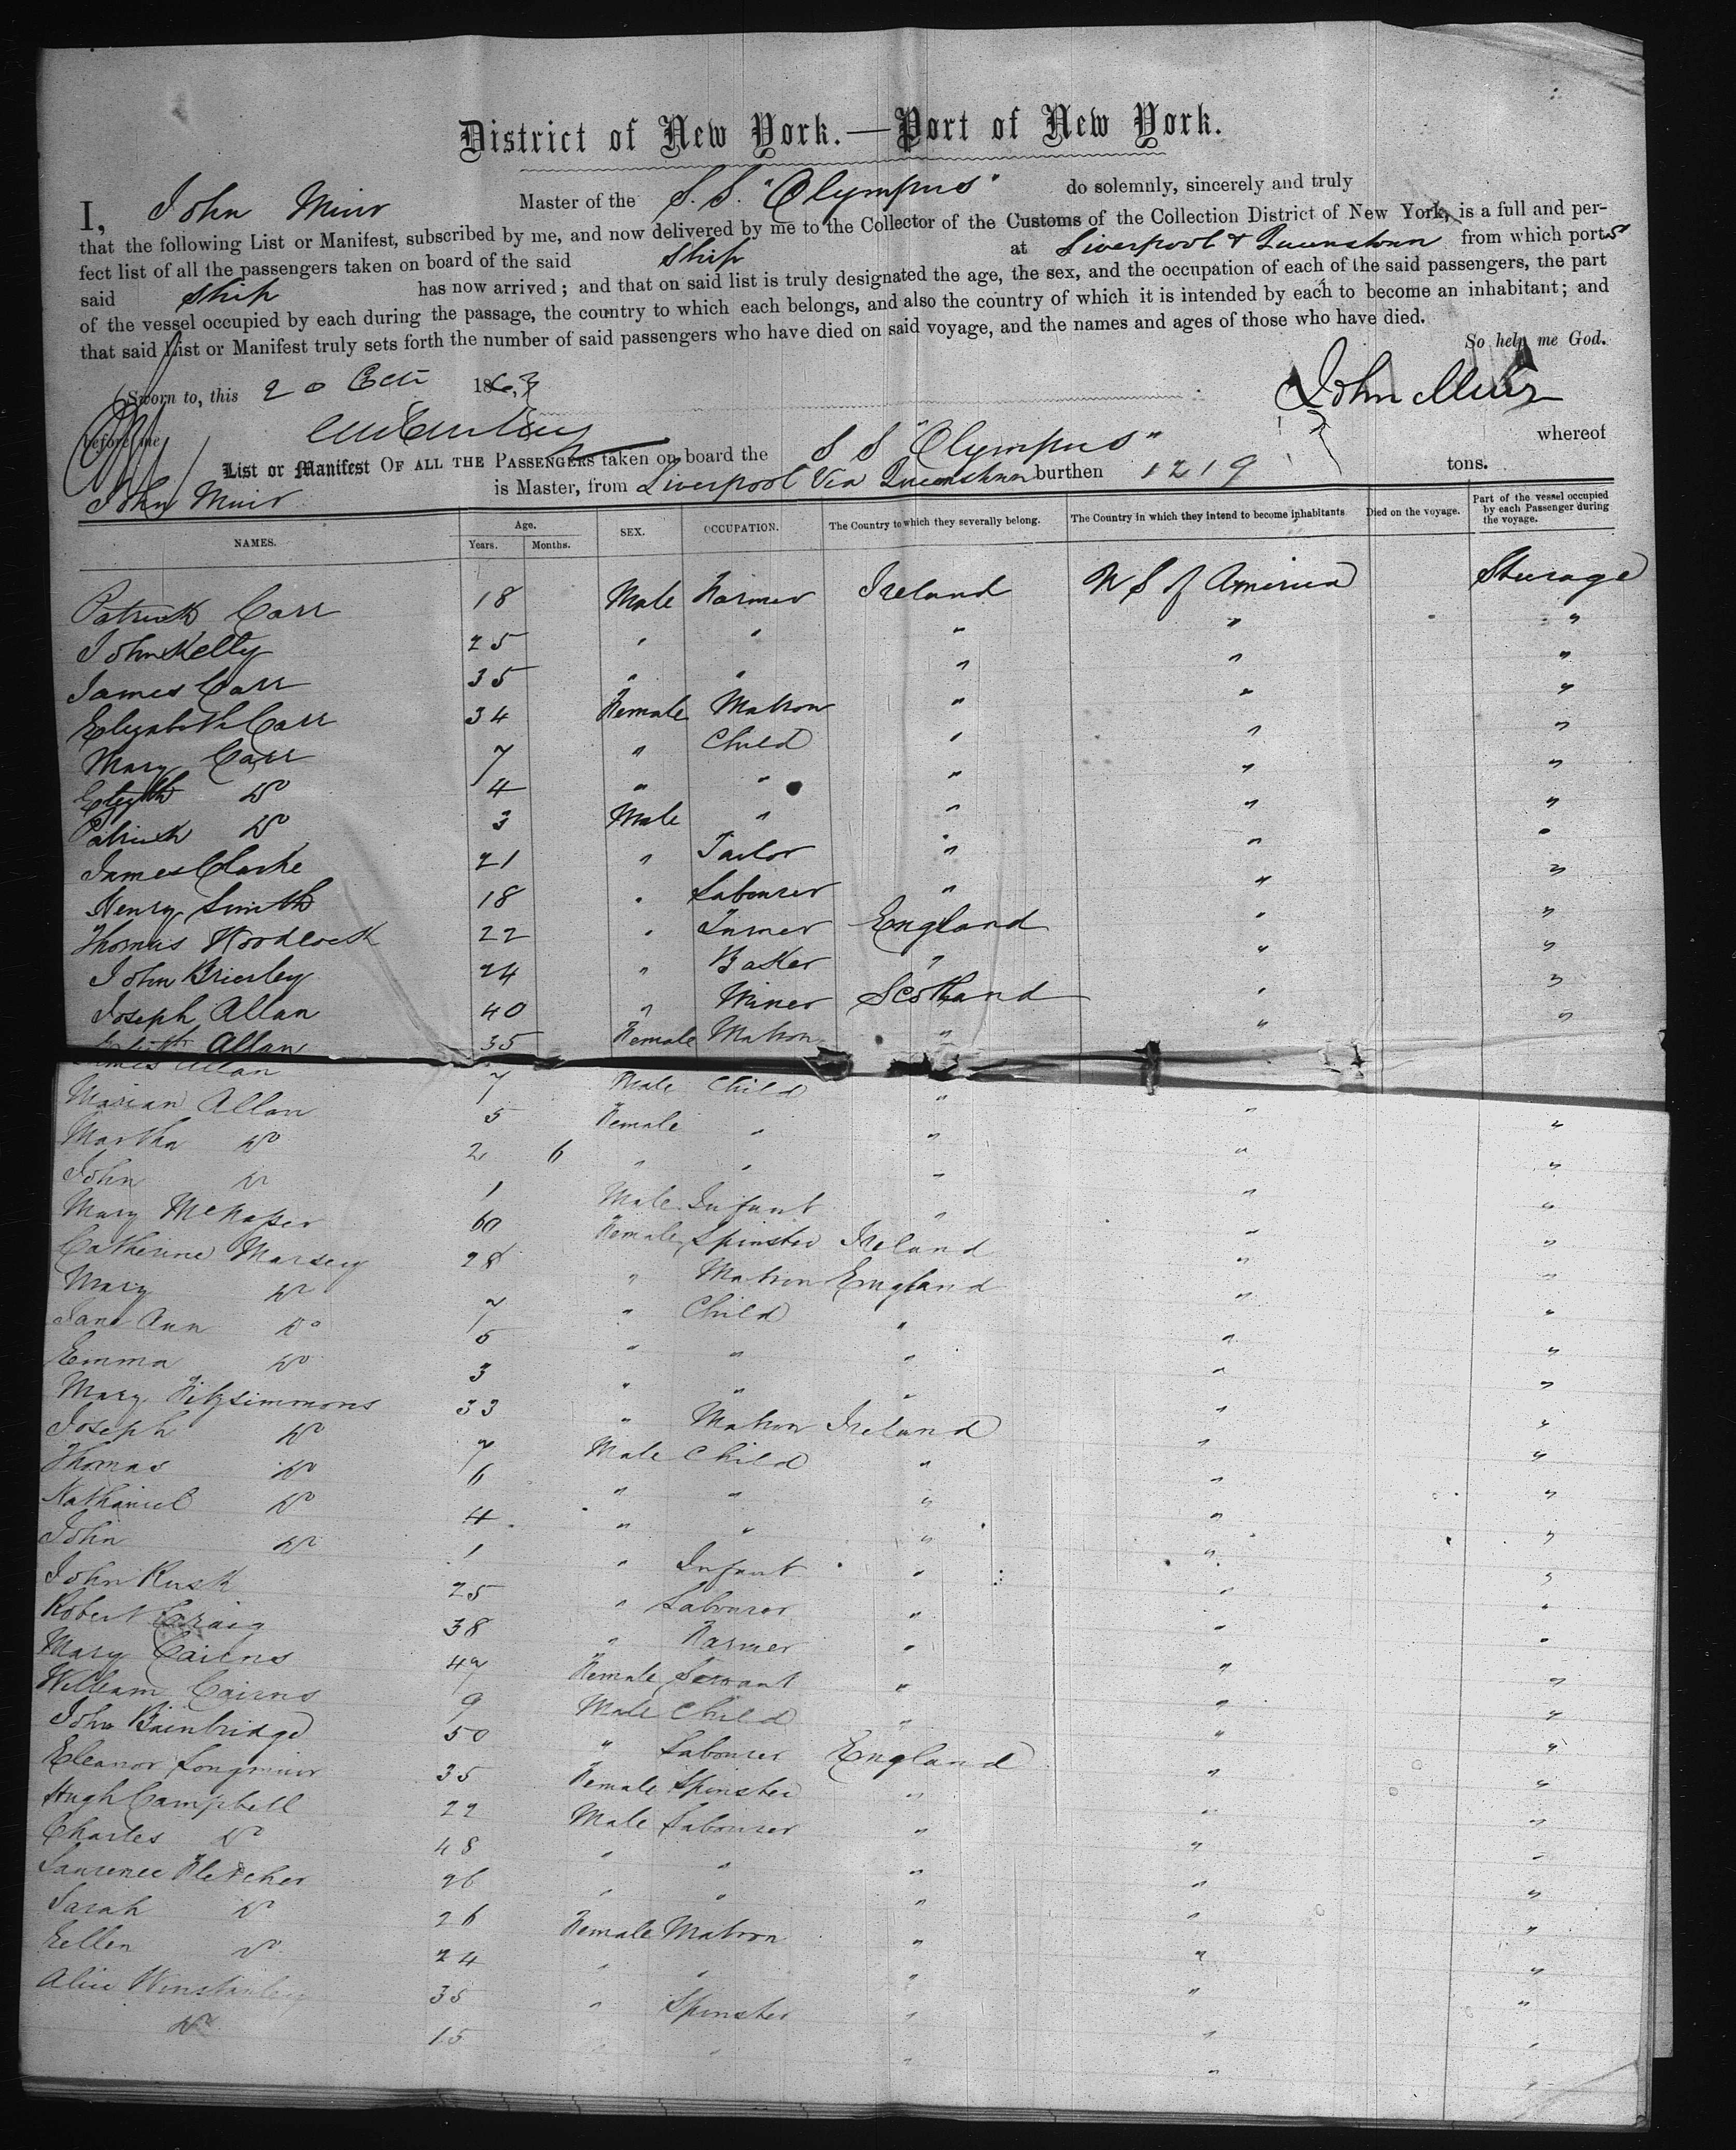 District of New York.—Port of New York.
I, John Muir Master of the S. S. "Olympus" do solemnly, sincerely and truly
that the following List or Manifest, subscribed by me, and now delivered by me to the Collector of the Customs of the Collection District of New York, is a full and per-
fect list of all the passengers taken on board of the said Ship at Liverpool & Queenstown from which ports
said Ship has now arrived; and that on said list is truly designated the age, the sex, and the occupation of each of the said passengers, the part
of the vessel occupied by each during the passage, the country to which each belongs, and also the country of which it is intended by each to become an inhabitant; and
that said List or Manifest truly sets forth the number of said passengers who have died on said voyage, and the names and ages of those who have died.
So help me God.
Sworn to, this 20 Oct 1863 John Muir
before me
List or Manifest OF ALL THE PASSENGERS taken on board the S S "Olympus" whereof
John Muir is Master, from Liverpool Via Queenstown burthen 1219 tons.
NAMES. Age. Years. Months. SEX. OCCUPATION. The Country to which they severally belong. The Country in which they intend to become inhabitants Died on the voyage. Part of the vessel occupied by each Passenger during the voyage.
Patrick Carr 18 Male Farmer Ireland U S of America Steerage
John Kelly 25 " " " " "
James Carr 35 " " " " "
Elizabeth Carr 34 Female Matron " " "
Mary Carr 7 " Child " " "
Elizth Do 4 " " " " "
Patrick Do 3 Male " " " "
James Clarke 21 " Tailor " " "
Henry Smith 18 " Labourer " " "
Thomas Woodcock 22 " Turner England " "
John Brierley 24 " Baker " " "
Joseph Allan 40 " Miner Scotland " "
Allan 35 Female Matron " " "
James Allan 7 Male Child "
Marian Allan 5 Female " " " "
Martha Do 2 6 " " " " "
John Do 1 Male Infant " " "
Mary 60 Female Spinster Ireland " "
Catherine Marsey 28 " Matron England " "
Mary Do 7 " Child " " "
Jane Ann Do 5 " " " " "
Emma Do 3 " " " " "
Mary Fitzsimmons 33 " Matron Ireland " "
Joseph Do 7 Male Child " " "
Thomas Do 6 " " " " "
Nathaniel Do 4 " " " " "
John Do 1 " Infant " " "
John Rusk 25 " Labourer " " "
Robert Craig 38 " Farmer " " "
Mary Cairns 47 Female Servant " " "
William Cairns 9 Male Child " " "
John Bainbridge 50 " Labourer England " "
Eleanor Longmuir 35 Female Spinster " " "
Hugh Campbell 22 Male Labourer " " "
Charles Do 48 " " " " "
Laurence Fletcher 26 " " " " "
Sarah Do 26 Female Matron " " "
Ellen Do 24 " " " " "
Alice Winstanley 35 " Spinster " " "
Do 15 " " " " "